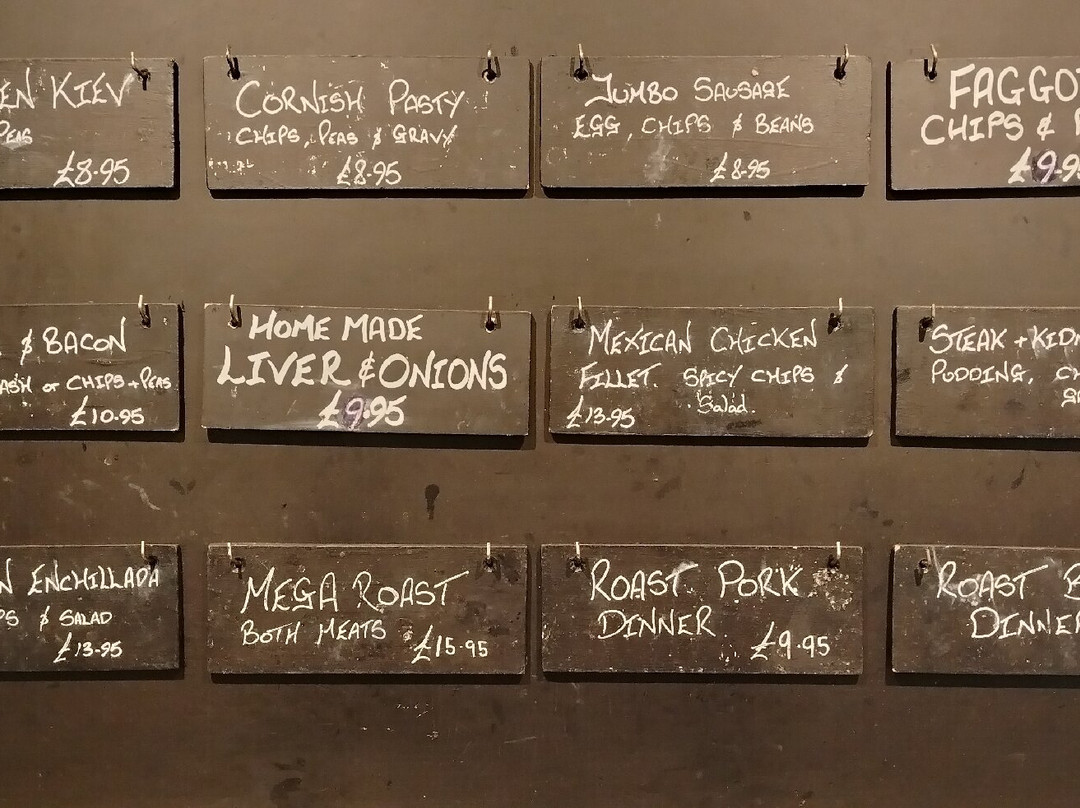 EN KIEV
PEAS
£8.95
CORNISH PASTY
CHIPS, PEAS & GRAVY
£8.95
JUMBO SAUSAGE
EGG, CHIPS & BEANS
£8.95
FAGGO
CHIPS &
£9.9
& BACON
ASH or CHIPS + PEAS
£10.95
HOME MADE
LIVER & ONIONS
£9.95
MEXICAN CHICKEN
FILLET. SPICY CHIPS &
Salad.
£13.95
STEAK + KID
PUDDING, CH
N ENCHILLADA
PS & SALAD
£13.95
MEGA ROAST
BOTH MEATS
£15.95
ROAST PORK
DINNER
£9.95
ROAST B
DINNE